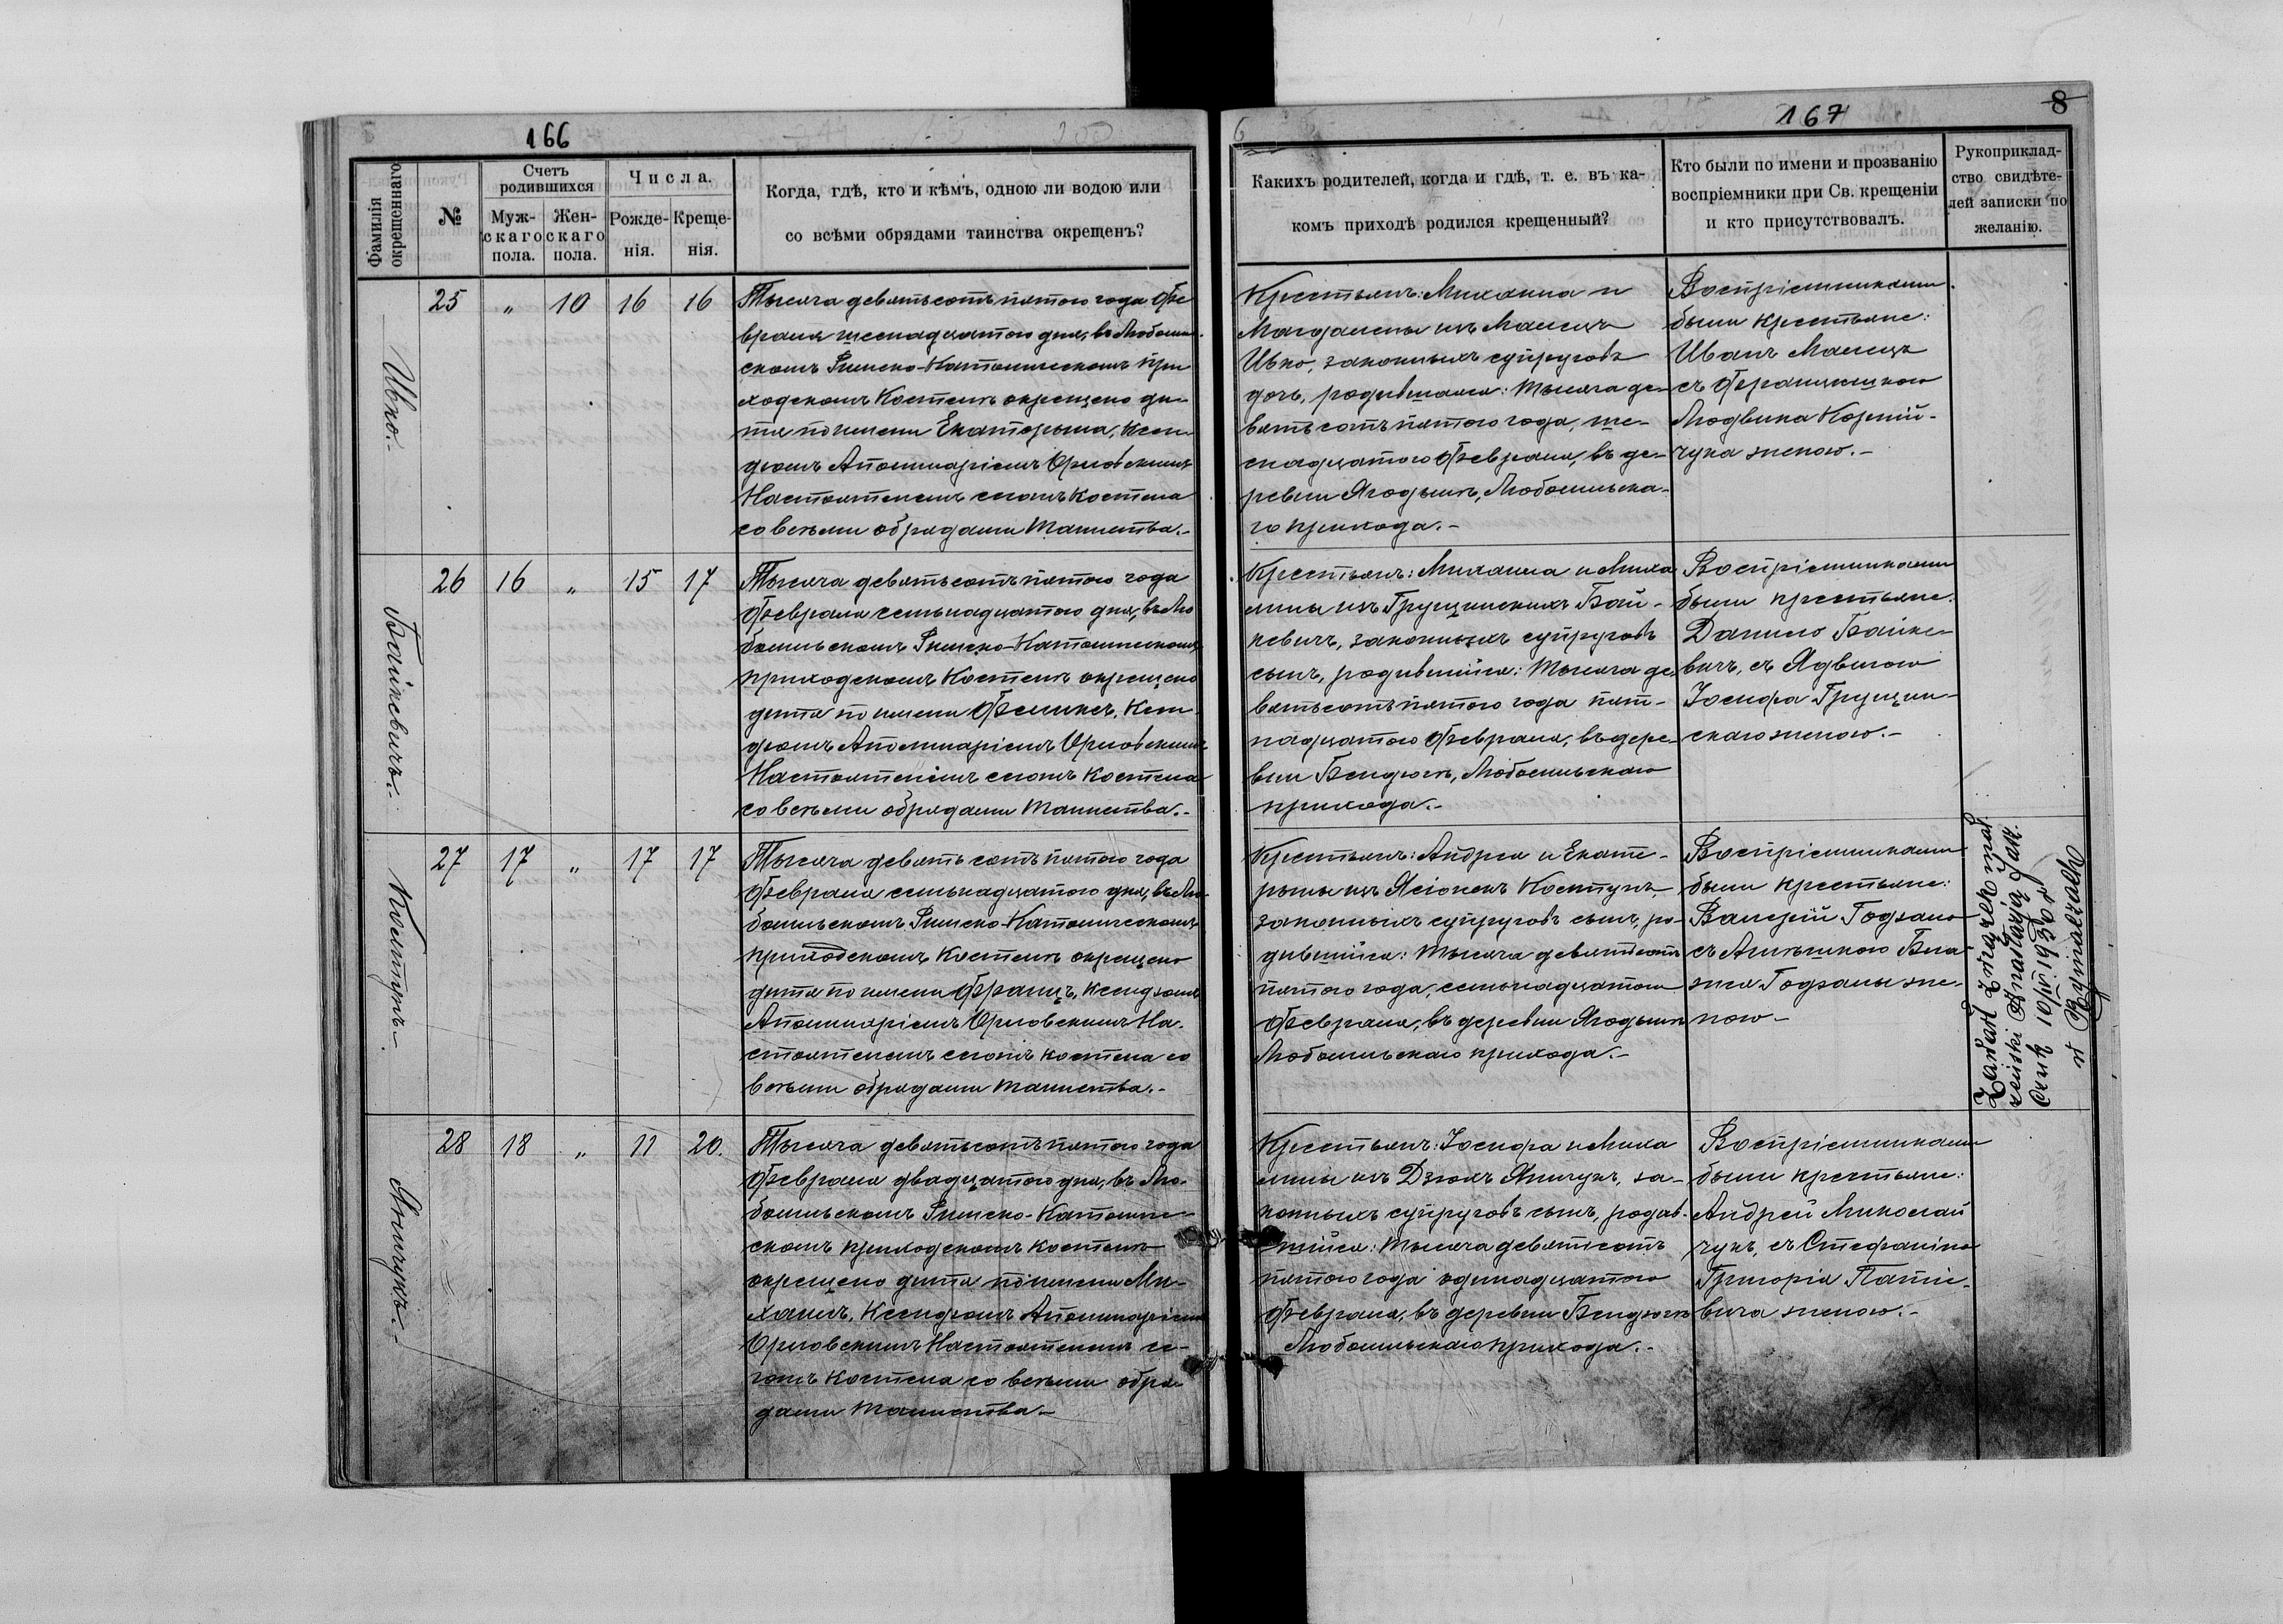 166
Фамилія окрещеннаго.
№
Счетъ родившихся
Муж-скаго пола.
Жен-скаго пола.
Числа.
Рожде-нія.
Креще-нія.
Когда, гдѣ, кто и кѣмъ, одною ли водою или
со всѣми обрядами таинства окрещенъ?
Ивко.-
25 " 10 16 16
Тысяча девятьсотъ пятого года Фе
враля шеснадцатого дня, въ Любомль
скомъ Римско-Католическомъ при
ходскомъ Костелѣ окрещено ди-
тя по имени Екатерына, Ксен-
дзомъ Аполинаріемъ Орловскимъ
Настоятелемъ сногъ костела
со всѣми обрядами Таинства.-
Байкевичъ.-
26 16 " 15 17
Тысяча девятьсотъ пятого года
Февраля семьнадцатого дня, въ Лю
бомльскомъ Римско-Католическомъ
приходскомъ Костелѣ окрещено
дитя по имени Феликсъ, Ксен-
дзомъ Аполинаріемъ Орловскимъ
Настоятелемъ костела
со всѣми обрядами Таинства.-
Костунъ.-
27 17 " 17 17
Тысяча девятьсотъ пятого года
Февраля семьнадцатого дня, въ Лю-
бомльскомъ Римско-Католическомъ
приходскомъ Костелѣ окрещено
дитя по имени Францъ, Ксендзомъ
Аполинаріемъ Орловскимъ На-
стоятелемъ костела со
всѣми обрядами таинства.-
Яничукъ.-
28 18 " 11 20.
Тысяча девятьсотъ пятого года
Февраля двадцатого дня, въ Лю-
бомльскомъ Римско-Католиче-
скомъ приходскомъ костелѣ
окрещено дитя по имени Ми-
хаилъ, Ксендзомъ Аполинаріемъ
Орловскимъ Настоятелемъ се-
гожъ Костела со всѣми обря-
дами таинства-
167
8
6
Какихъ родителей, когда и гдѣ, т. е. въ ка-
комъ приходѣ родился крещенный?
Кто были по имени и прозванію
воспріемники при Св. крещеніи
и кто присутствовалъ.
Рукоприклад-
ство свидѣте-
лей записки по
желанію.
Крестьянъ: Михаила и
Магдалены изъ Малецъ
Ивко, законныхъ супруговъ
дочь, родившаяся: Тысяча де-
вятьсотъ пятого года, ше-
снадцатого Февраля, въ де-
ревни Ягодынѣ, Любомльска-
го прихода.-
Воспріемниками
были крестьяне:
Иванъ Малецъ
съ Францишкою
Людвика Корній-
чука женою.-
Крестьянъ: Михаила и Миха
лины изъ Грущинскихъ Бай-
кевичъ, законныхъ супруговъ
сынъ, родившійся: Тысяча де-
вятьсотъ пятого года пят-
надцатого Февраля, въ дере-
вни Бендюгѣ, Любомльскаго
прихода.-
Воспріемниками
были крестьяне:
Данило Байке-
вичъ, съ Ядвигою
Іосифа Грущин-
скаго женою.-
Крестьянъ: Андрея и Екате-
рыны изъ Ясіонекъ Костунъ,
законныхъ супруговъ сынъ, ро-
дившійся: Тысяча девятьсотъ
пятого года, семьнадцатого
Февраля, въ деревни Ягодынѣ
Любомльскаго прихода.-
Воспріемниками
были крестьяне:
Валерій Годзало
съ Аполлною Бла
жея Годзалы же-
ною-
Związek mał-
żeński
10/VI 1930 r
w
Крестьянъ: Іосифа и Миха
лины изъ Дзюкъ Яничукъ, за-
конныхъ супруговъ сынъ, родив-
шійся: Тысяча девятьсотъ
пятого года одинадцатого
Февраля, въ деревни Бендюгѣ
Любомльскаго прихода.-
Воспріемниками
были крестьяне:
Андрей Миколай
чукъ, съ Стефаніею
Григорія
вича женою.-